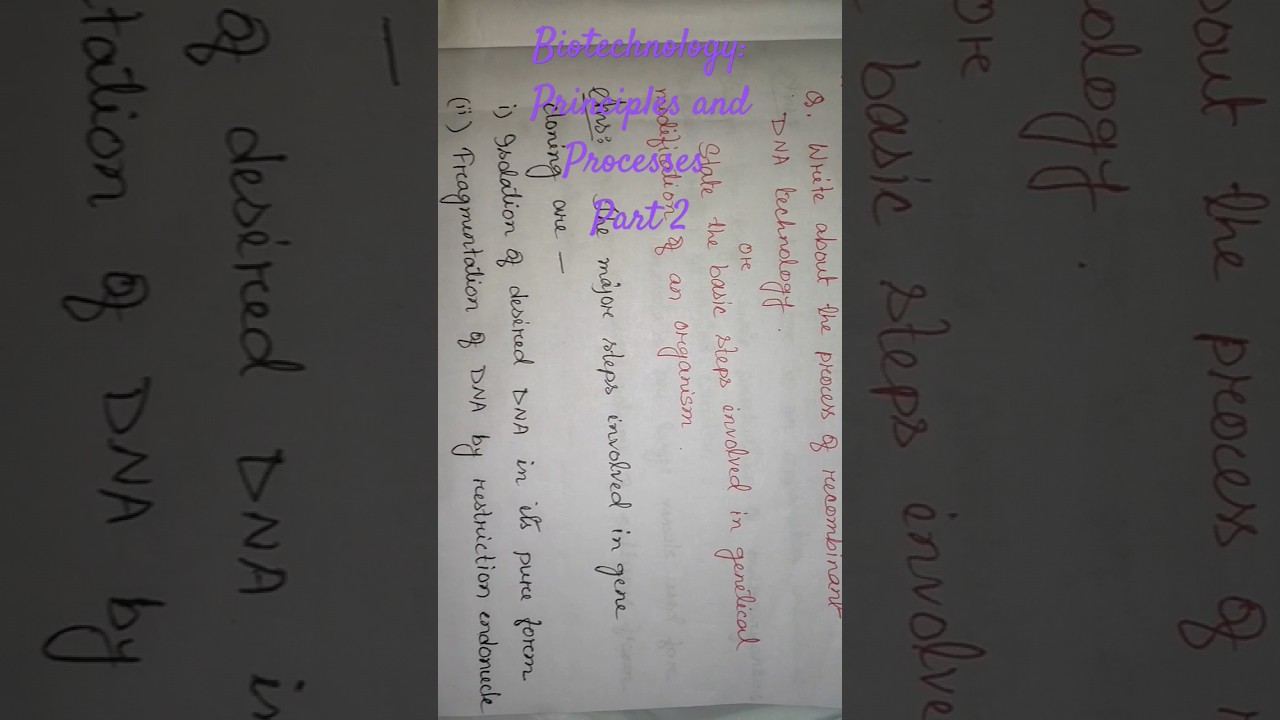 Biotechnology:
Principles and
Processes
Part 2
Q. Write about the process of recombinant
DNA technology.
or
State the basic steps involved in genetical
modification of an organism.
Ans: The major steps involved in gene
cloning are —
i) Isolation of desired DNA in its pure form
(ii) Fragmentation of DNA by restriction endonucle